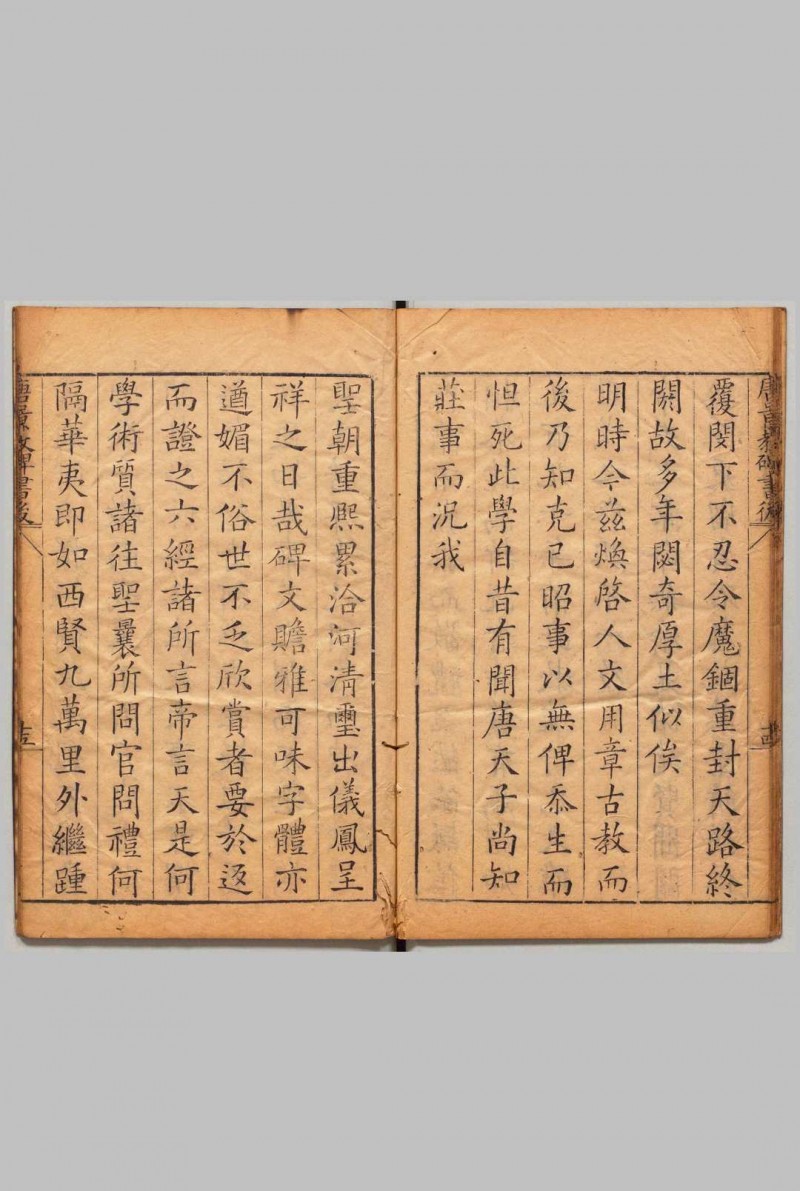 覆閔下不忍令魔錮重封天路終
闕故多年閟奇厚土似俟
明時今茲煥啓人文用章古教而
後乃知克己昭事以無俾忝生而
怛死此學自昔有聞唐天子尚知
莊事而況我
聖朝重熙累洽河清璽出儀鳳呈
祥之日哉碑文贍雅可味字體亦
遒媚不俗世不乏欣賞者要於返
而證之六經諸所言帝言天是何
學術質諸往聖曩所問官問禮何
隔華夷即如西賢九萬里外繼踵
唐景教碑書後